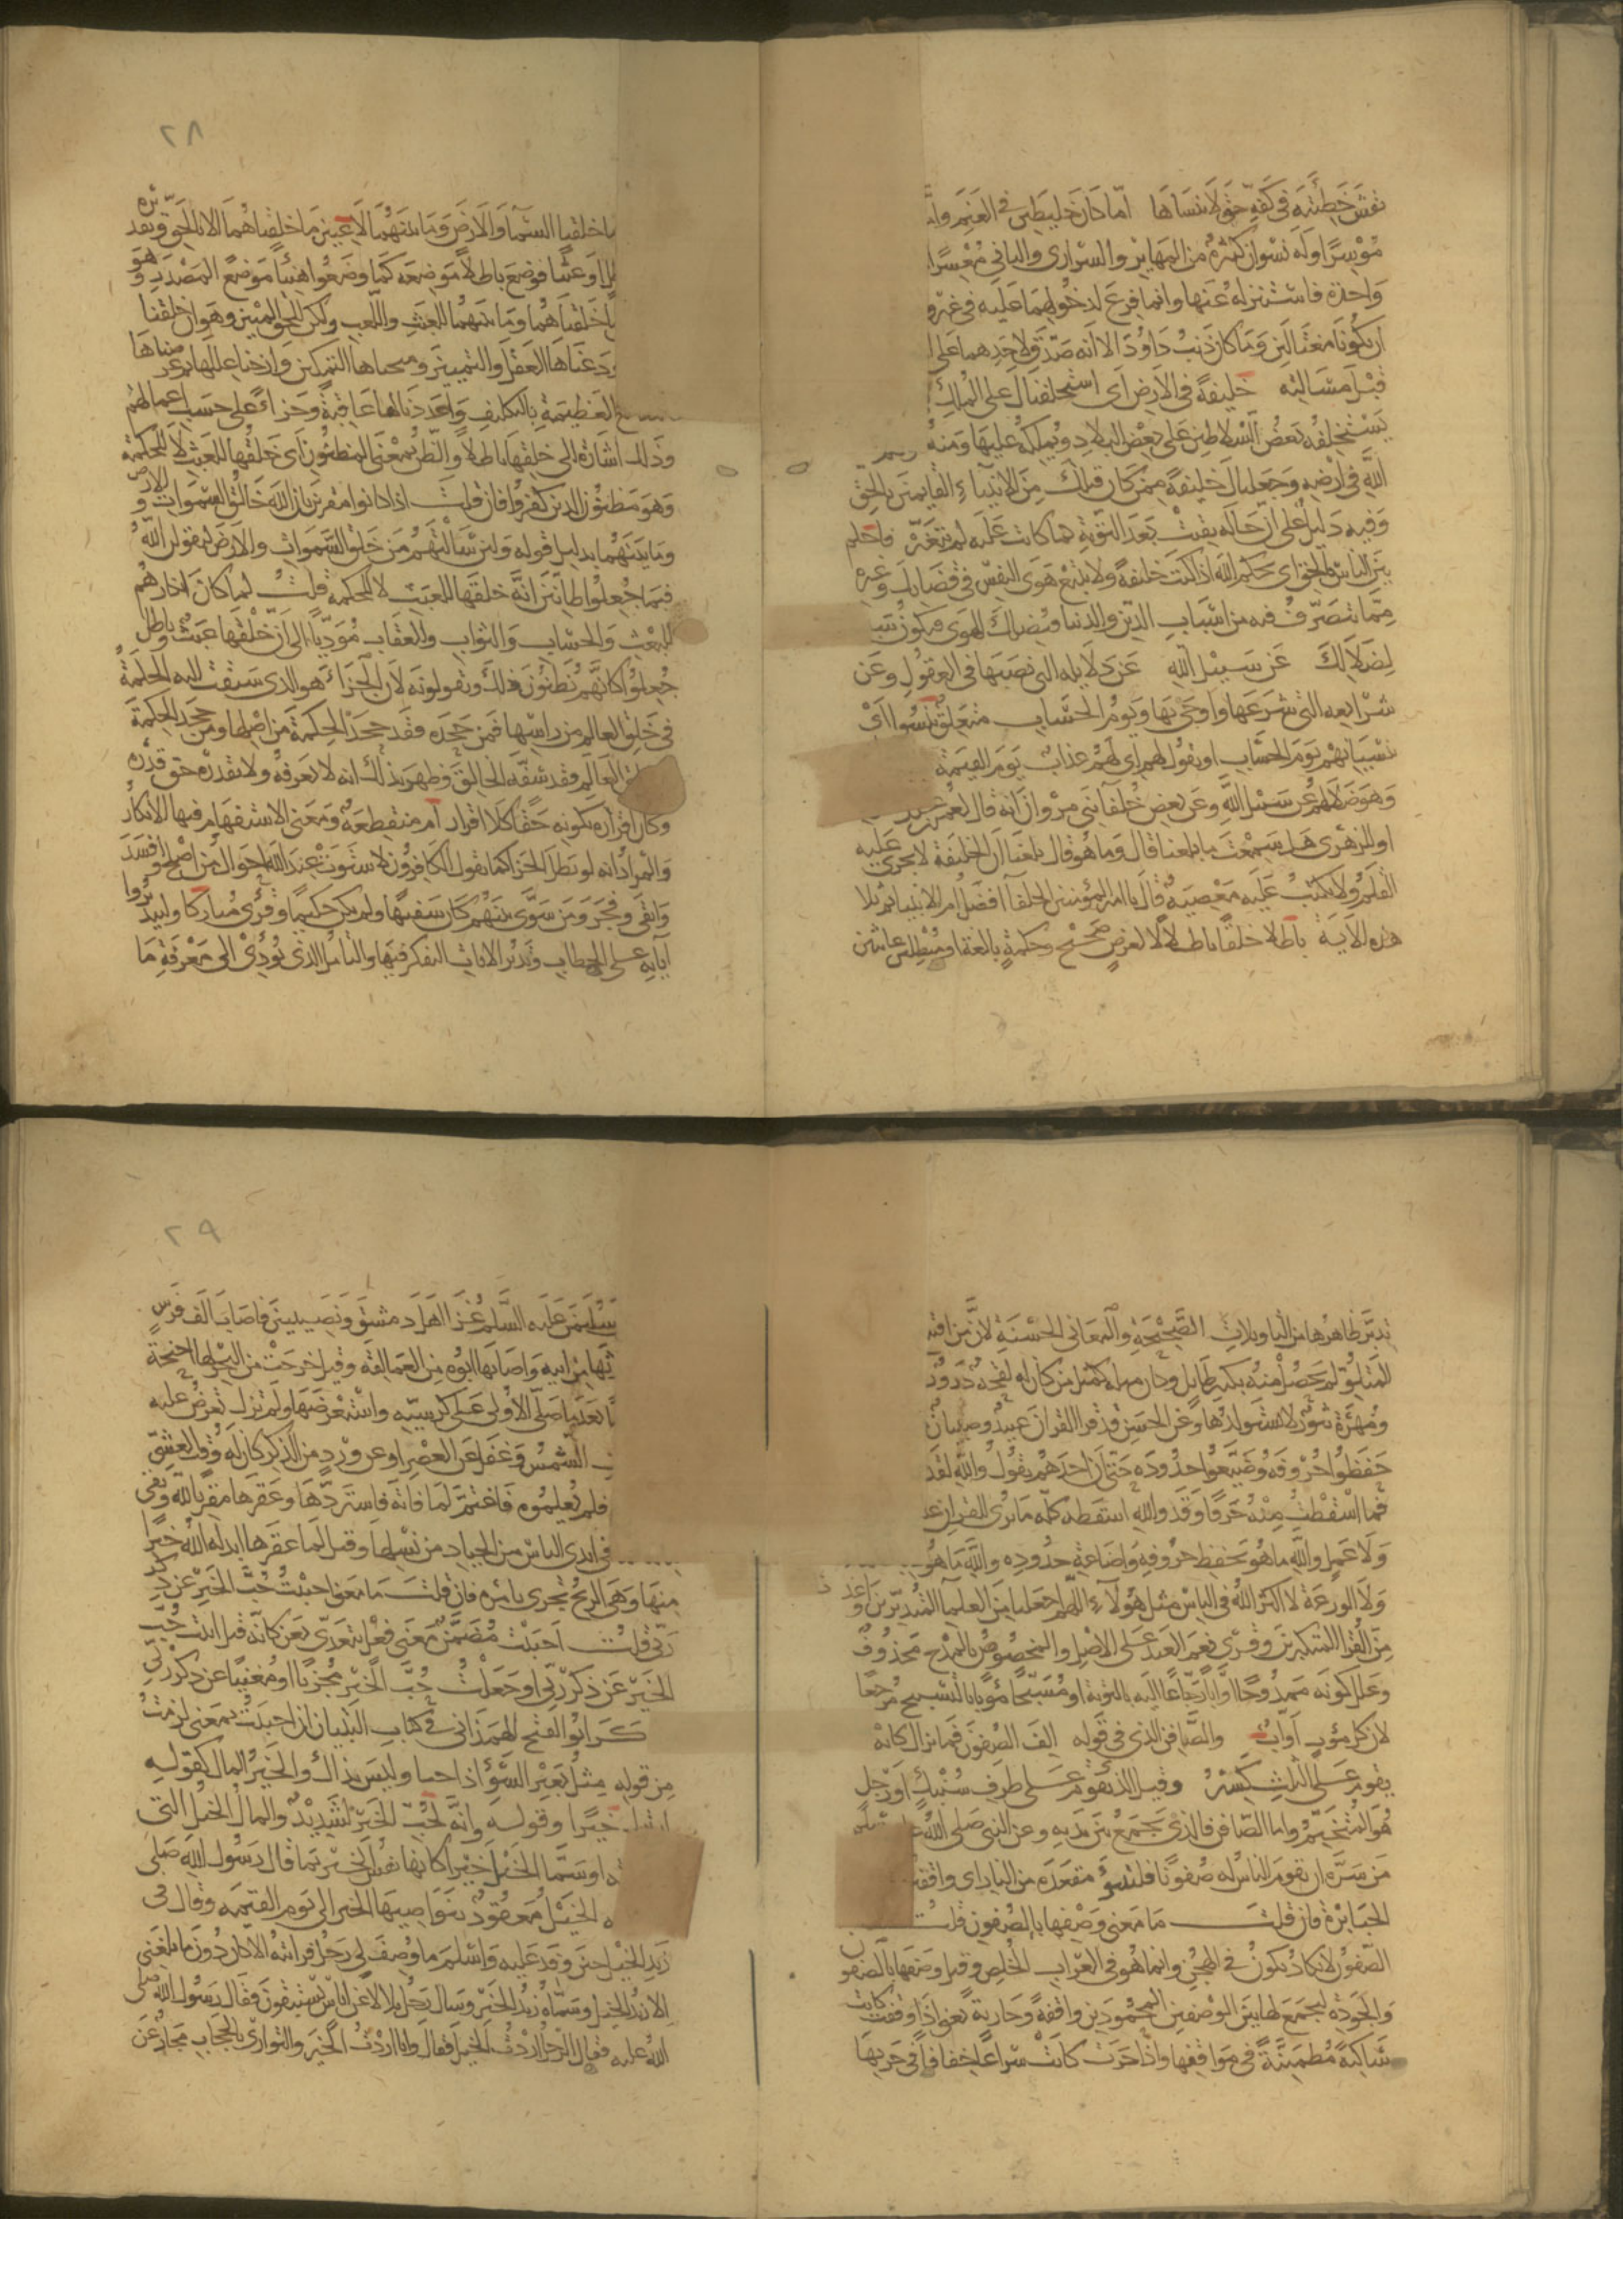 نقش خطيئته في كفه حتى لا ينساها اما كان خليطين في الغنم واما
موسرا وله نسوان كثيرة من المهاير والسراري والثاني معسرا
واحدة فاستنزله عنها وانما فزع لدخولهما عليه في غير و
ان يكونا مغتالين وما كان ذنب داود الا انه صدق لاحدهما على ا
قبل مسالته خليفة في الارض اي استخلفناك على الملك
يستخلفه بعض السلاطين على بعض البلاد ويملكه عليها ومنه
الله في ارضه وجعلناك خليفة ممن كان قبلك من الانبياء القايمين بالحق
وفيه دليل على ان حاله بقيت بعد التوبة كما كانت عليه لم تتغير فاحكم
بين الناس بالحق اي بحكم الله اذ كنت خليفة ولا تتبع هوى النفس في قضايك وغيره
مما تتصرف فيه من اسباب الدين والدنيا فيضلك الهوى فيكون سببا
لضلالك عن سبيل الله عن دلايله التي نصبها في العقول وعن
شرايعه التي شرعها واوحى بها ويوم الحساب متعلق بنسوا اي
بنسيانهم يوم الحساب او بقوله لهم اي لهم عذاب يوم القيمة
وهو ضلالهم عن سبيل الله وعن بعض خلفا بني مروان انه قال لعمر بن عبد
او للزهري هل سمعت ما بلغنا قال وما هو قال بلغنا ان الخليفة لا يجري عليه
القلم ولا يكتب عليه معصية قال يا امير المؤمنين الخلفا افضل ام الانبيا ثم تلا
هذه الاية باطلا خلقا باطلا لا لغرض صحيح وحكمة بالغة او مبطلين عابثين
٢٨
ما خلقنا السماء والارض وما بينهما لاعبين ما خلقناهما الا بالحق وتقديره
او عبثا فوضع باطلا موضعه كما وضعوا هنيئا موضع المصدر وهو
خلقناهما وما بينهما للعبث واللعب ولكن للحق المبين وهو ان خلقنا
اودعناها العقل والتمييز ومنحناها التمكين وازحنا عللها ثم عرضناها
العظيمة بالتكليف واعددنا لها عاقبة وجزاء على حسب اعمالهم
وذلك اشارة الى خلقها باطلا والظن بمعنى المظنون اي خلقها للعبث لا للحكمة
وهو مظنون الذين كفروا فان قلت اذا كانوا مقرين بان الله خالق السموات والارض و
وما بينهما بدليل قوله ولئن سالتهم من خلق السموات والارض ليقولن الله
فبم جعلوا ظانين انه خلقها للعبث لا للحكمة قلت لما كان انكارهم
للبعث والحساب والثواب والعقاب مؤديا الى ان خلقها عبث وباطل
جعلوا كانهم يظنون ذلك ويقولونه لان الجزاء هو الذي سبقت اليه الحكمة
في خلق العالم من راسها فمن جحده فقد جحد الحكمة من اصلها ومن جحد الحكمة
العالم فقد سفه الخالق وظهر بذلك انه لا يعرفه ولا يقدره حق قدره
وكان اقراره بكونه خالقا كلا اقرار ام منقطعة ومعنى الاستفهام فيها الانكار
والمراد انه لو بطل الجزا كما يقول الكافرون لاستوت عند الله احوال من اصلح وافسد
واتقى وفجر ومن سوى بينهم كان سفيها ولم يكن حكيما وقرئ مباركا وليتدبروا
اياته على الخطاب وتدبر الايات التفكر فيها والتامل الذي يؤدي الى معرفة ما
تدبر ظاهرها من التاويلات الصحيحة والمعاني الحسنة لان من اقتنع
المتلو لم يحصل منه بكثير طايل وكان مثله كمثل من كان له لقحة درور
ومهرة نثور لا يستولدها وعن الحسن قد قرا القران عبيد وصبيان
حفظوا حروفه وضيعوا حدوده حتى ان احدهم يقول والله لقد
فما اسقطت منه حرفا وقد والله اسقطه كله ما يرى القران عليه
ولا عمل والله ما هو بحفظ حروفه واضاعة حدوده والله ما هو
ولا الورعة لا اكثر الله في الناس مثل هؤلاء اللهم اجعلنا من العلما المتدبرين واعذنا
من القرا المتكبرين وقرئ نعم العبد على الاصل والمخصوص بالمدح محذوف
وعلل كونه ممدوحا اوابا رجاعا اليه بالتوبة او مسبحا مؤوبا بالتسبيح مرجعا
لان كل مؤوب اواب والصافن الذي في قوله الف الصفون فما يزال كانه
يقوم على الثلث كسير وقيل الذي يقوم على طرف سنبك او رجل
هو المتخيم واما الصافن فالذي يجمع بين يديه وعن النبي صلى الله عليه وسلم
من سره ان يقوم الناس له صفونا فليتبوء مقعده من النار اي واقفين
الجبابرة فان قلت ما معنى وصفها بالصفون قلت
الصفون لا يكاد يكون في الهجن وانما هو في العراب الخلص وقيل وصفها بالصفون
والجودة ليجمع لها بين الوصفين المحمودين واقفة وجارية يعني اذا وقفت كانت
ساكنة مطمئنة في مواقفها واذا جرت كانت سراعا خفافا في جريها
٢٩
سليمن عليه السلم غزا اهل دمشق ونصيبين فاصاب الف فرس
ورثها من ابيه واصابها ابوه من العمالقة وقيل خرجت من البحر لها اجنحة
بعد ما صلى الاولى على كرسيه واستعرضها ولم تزل تعرض عليه
الشمس وغفل عن العصر او عن ورد من الذكر كان له وقت العشي
فلم يعلموه فاغتم لما فاته فاستردها وعقرها مقربا لله وبقي
في ايدي الناس من الجياد من نسلها وقيل لما عقرها ابدله الله خيرا
منها وهي الريح تجري بامره فان قلت ما معنى احببت حب الخير عن ذكر
ربي قلت احببت مضمن معنى فعل يتعدى بعن كانه قيل انبت حب
الخير عن ذكر ربي او جعلت حب الخير مجزيا او مغنيا عن ذكر ربي
ذكر ابو الفتح الهمذاني في كتاب التبيان ان احببت بمعنى لزمت
من قوله مثل بعير السوء اذا احبا وليس بذاك والخير المال كقوله
خيرا وقوله وانه لحب الخير لشديد والمال الخيل التي
او سمى الخيل خيرا كانها نفس الخير بما قال رسول الله صلى
الخيل معقود بنواصيها الخير الى يوم القيمة وقال في
زيد الخيل حين وفد عليه واسلم ما وصف لي رجل فرايته الا كان دون ما بلغني
الا زيد الخيل وسماه زيد الخير وسال رجل بلالا عن اناس يستبقون فقال رسول الله صلى
الله عليه فقال الرجل اردت الخيل فقال وانا اردت الخير والتواري بالحجاب مجاز عن